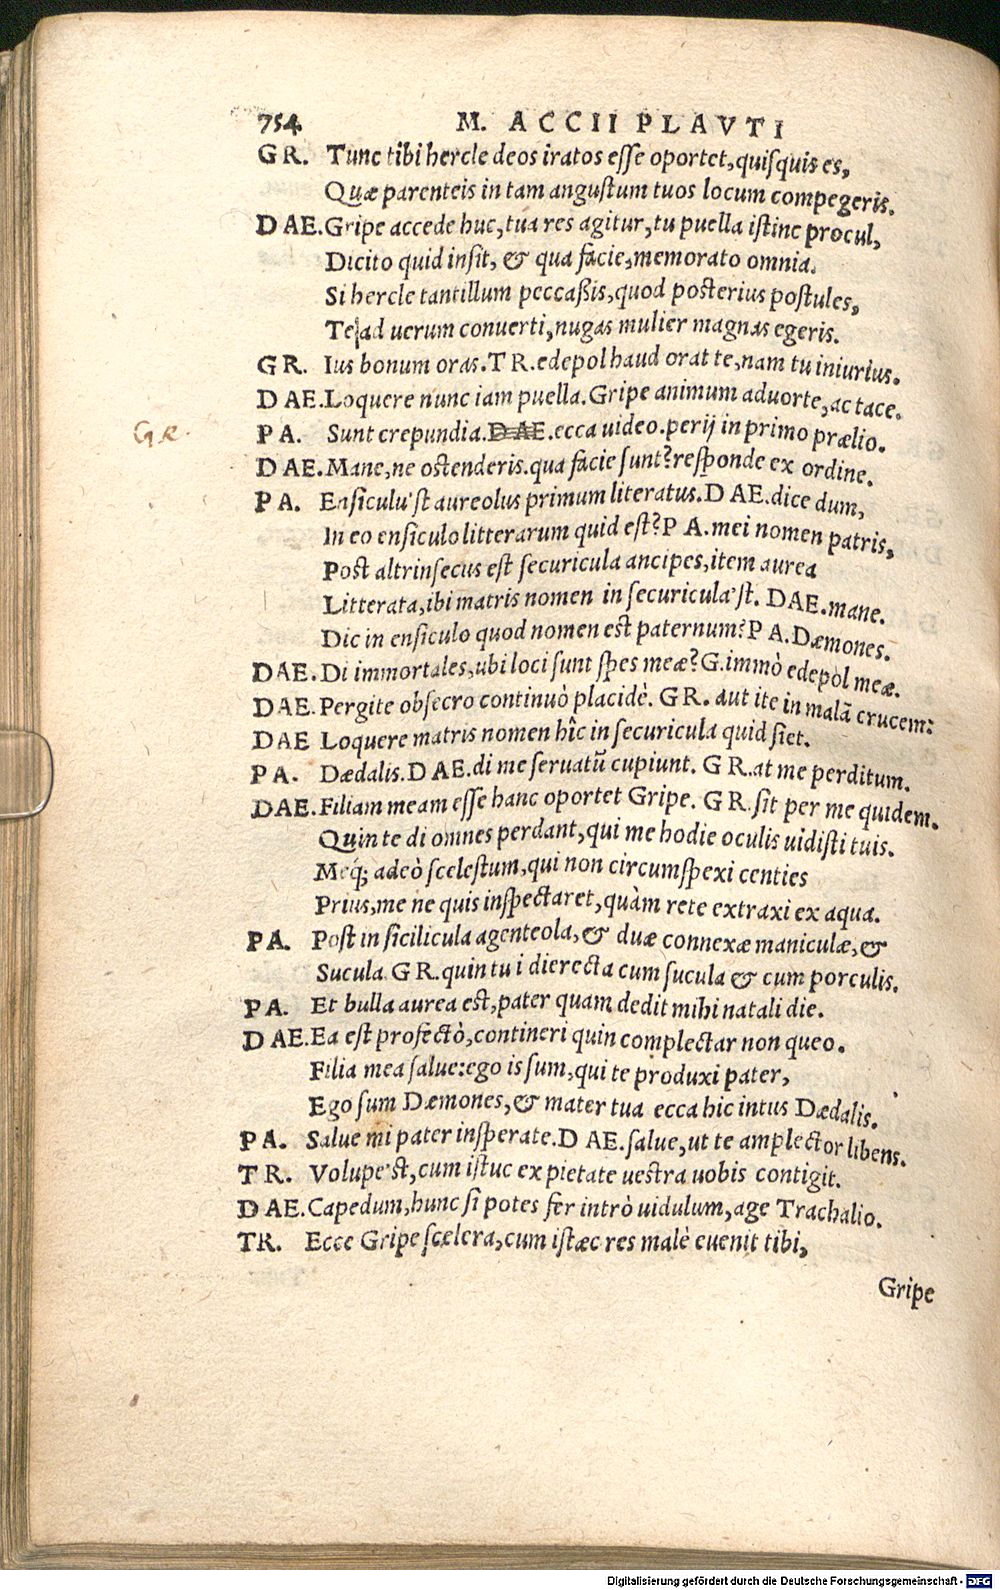 754 M. ACCII PLAVTI
GR. Tunc tibi hercle deos iratos esse oportet, quisquis es,
Quæ parenteis in tam angustum tuos locum compegeris.
DAE. Gripe accede huc, tua res agitur, tu puella istinc procul,
Dicito quid insit, & qua facie, memorato omnia.
Si hercle tantillum peccaßis, quod posterius postules,
Te ad uerum conuerti, nugas mulier magnas egeris.
GR. Ius bonum oras. TR. edepol haud orat te, nam tu iniurius.
DAE. Loquere nunc iam puella. Gripe animum aduorte, ac tace.
GR.
PA. Sunt crepundia. DAE. ecca uideo. perij in primo prælio.
DAE. Mane, ne ostenderis. qua facie sunt? responde ex ordine.
PA. Ensiculu'st aureolus primum literatus. DAE. dice dum,
In eo ensiculo litterarum quid est? PA. mei nomen patris,
Post altrinsecus est securicula ancipes, item aurea
Litterata, ibi matris nomen in securicula'st. DAE. mane.
Dic in ensiculo quod nomen est paternum? PA. Dæmones.
DAE. Di immortales, ubi loci sunt spes meæ? G. immò edepol meæ.
DAE. Pergite obsecro continuò placidè. GR. aut ite in malã crucem:
DAE Loquere matris nomen hîc in securicula quid siet.
PA. Dædalis. DAE. di me seruatũ cupiunt. GR. at me perditum.
DAE. Filiam meam esse hanc oportet Gripe. GR. sit per me quidem.
Quin te di omnes perdant, qui me hodie oculis uidisti tuis.
Meq́; adeò scelestum, qui non circumspexi centies
Prius, me ne quis inspectaret, quàm rete extraxi ex aqua.
PA. Post in sicilicula agenteola, & duæ connexæ maniculæ, &
Sucula. GR. quin tu i dierecta cum sucula & cum porculis.
PA. Et bulla aurea est, pater quam dedit mihi natali die.
DAE. Ea est profectò, contineri quin complectar non queo.
Filia mea salue: ego is sum, qui te produxi pater,
Ego sum Dæmones, & mater tua ecca hic intus Dædalis.
PA. Salue mi pater insperate. DAE. salue, ut te amplector libens.
TR. Volupe'st, cum istuc ex pietate uestra uobis contigit.
DAE. Capedum, hunc si potes fer intrò uidulum, age Trachalio.
TR. Ecce Gripe scelera, cum istæc res malè euenit tibi,
Gripe
Digitalisierung gefördert durch die Deutsche Forschungsgemeinschaft - DFG